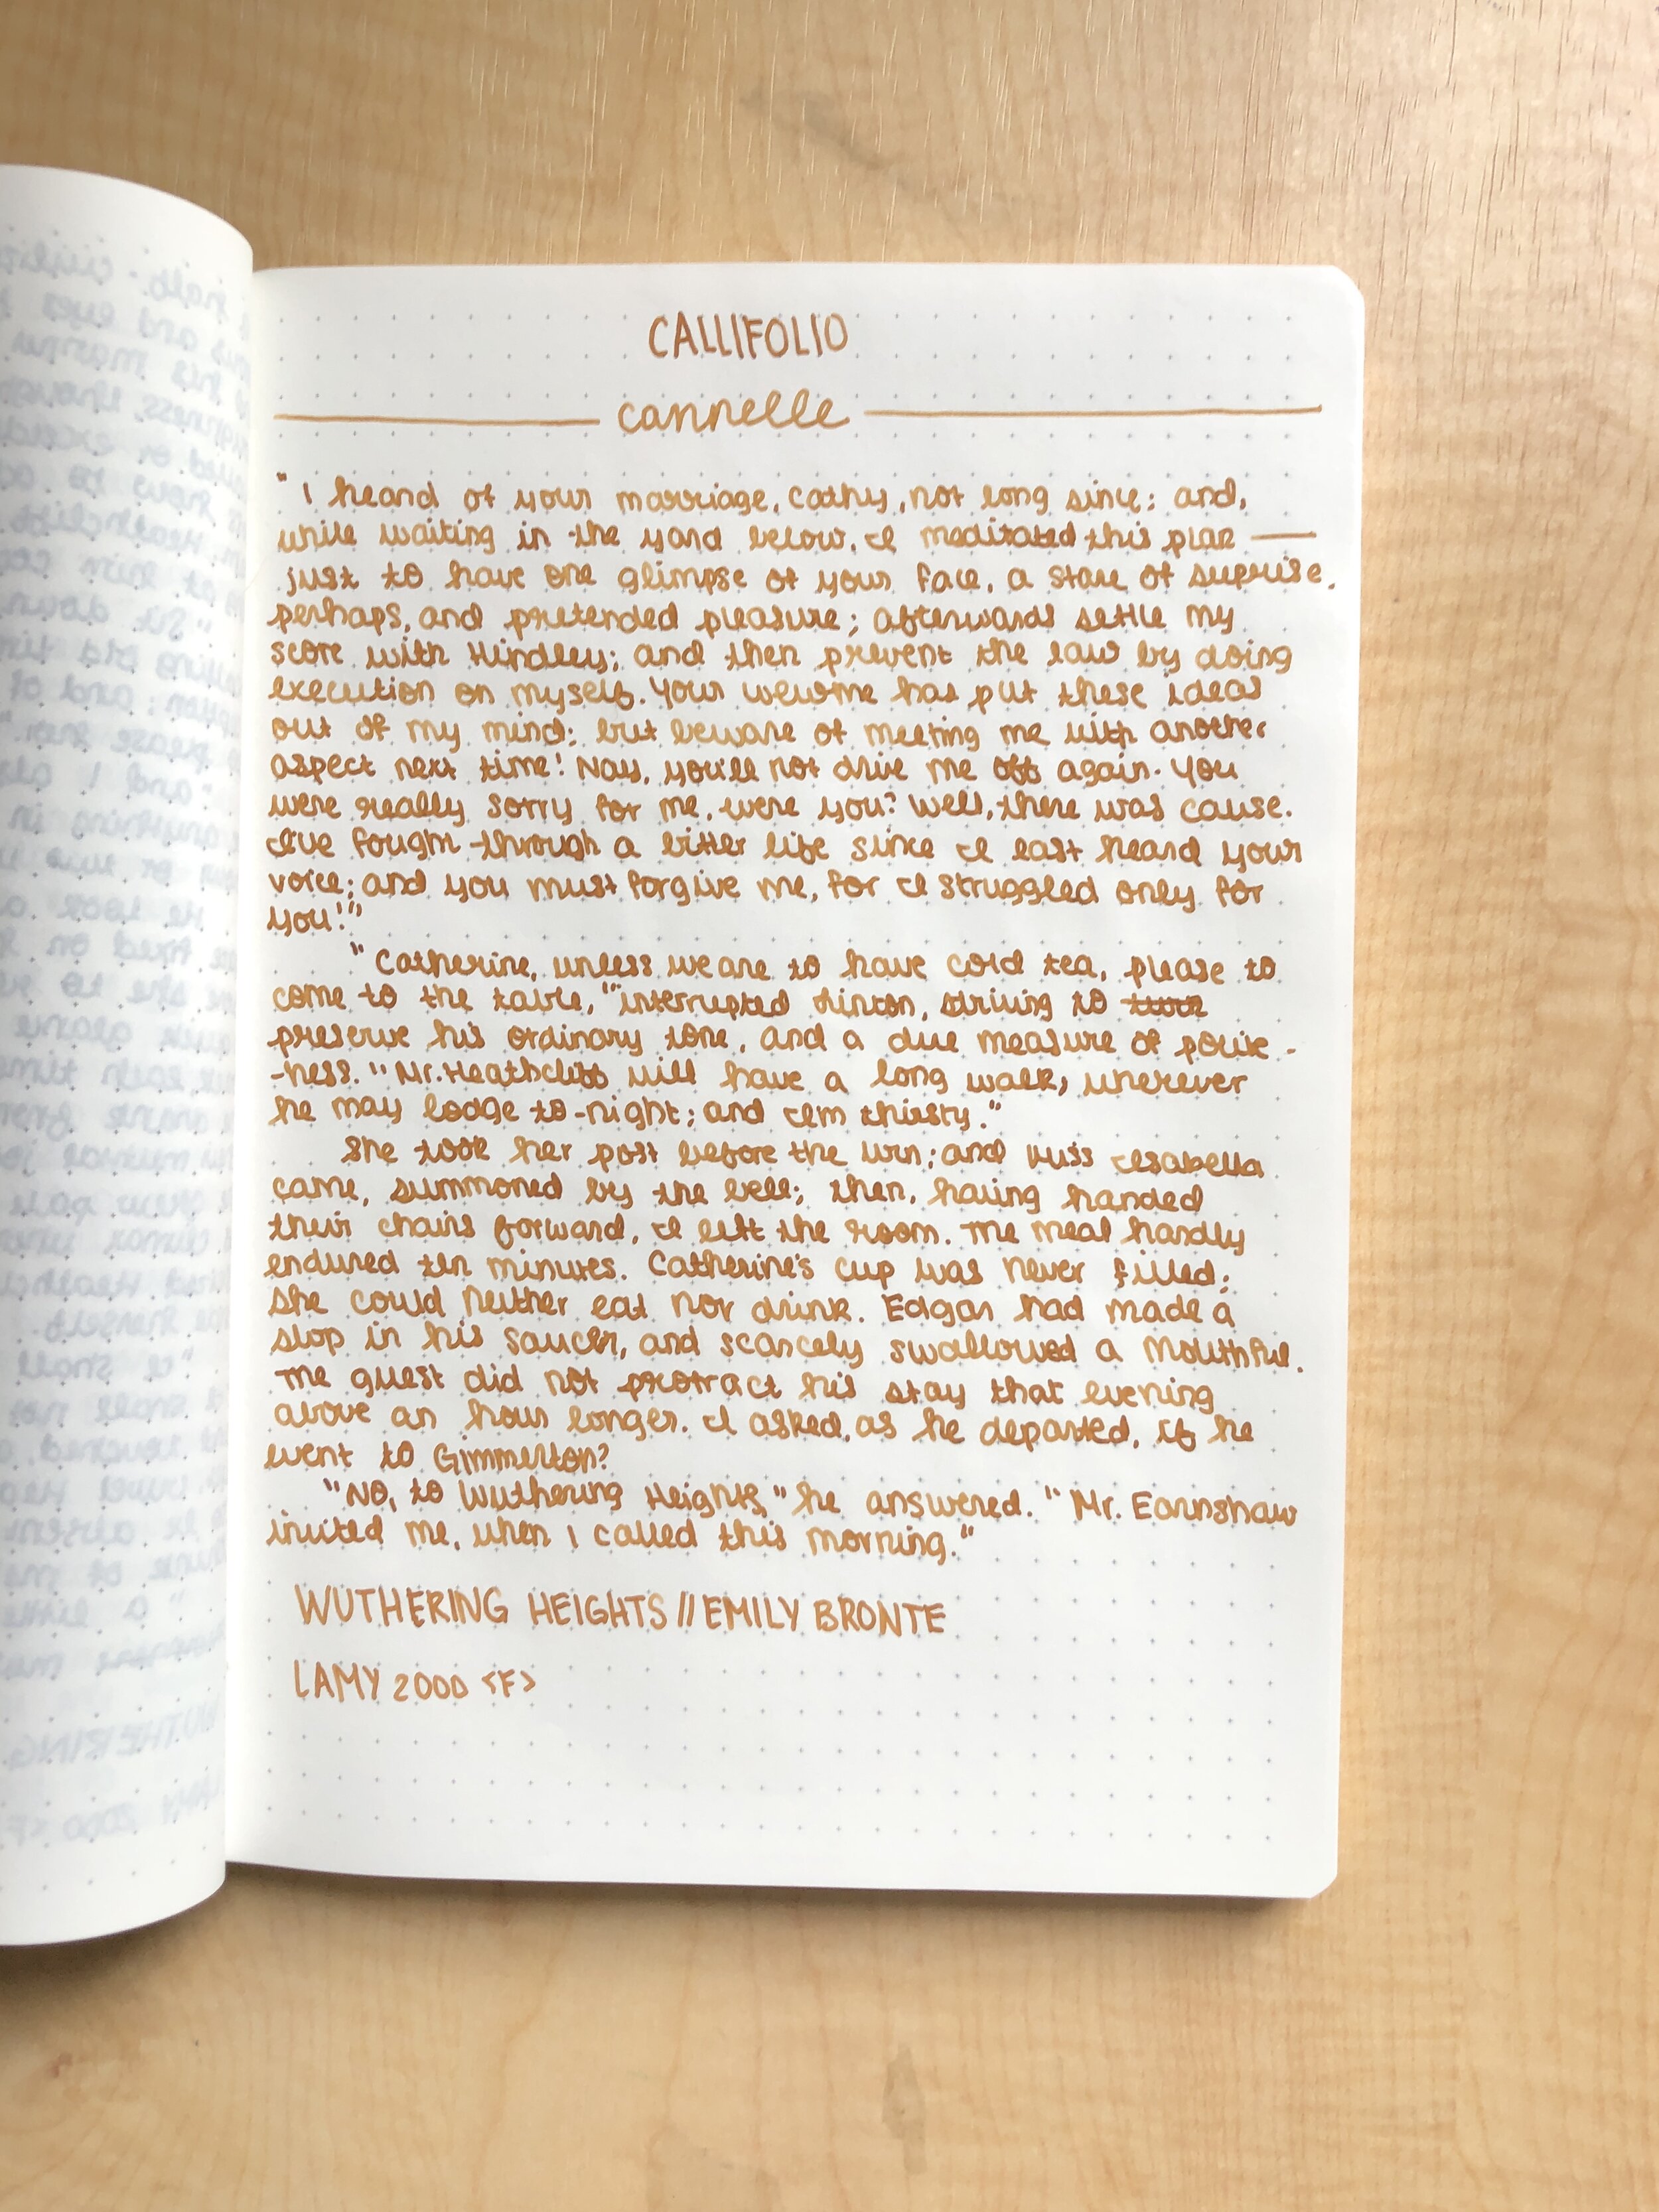 CALLIFOLIO
cannelle
"I heard of your marriage, Cathy, not long since; and,
while waiting in the yard below, I meditated this plan —
just to have one glimpse of your face, a stare of suprise,
perhaps, and pretended pleasure; afterwards settle my
score with Hindley; and then prevent the law by doing
execution on myself. Your welcome has put these ideas
out of my mind; but beware of meeting me with another
aspect next time! Nay, you'll not drive me off again. You
were really sorry for me, were you? Well, there was cause.
I've fought through a bitter life since I last heard your
voice; and you must forgive me, for I struggled only for
you!"
"Catherine, unless we are to have cold tea, please to
come to the table," interrupted Linton, striving to
preserve his ordinary tone, and a due measure of polite-
-ness. "Mr. Heathcliff will have a long walk, wherever
he may lodge to-night; and I'm thirsty."
She took her post before the urn; and Miss Isabella
came, summoned by the bell; then, having handed
their chairs forward, I left the room. The meal hardly
endured ten minutes. Catherine's cup was never filled;
she could neither eat nor drink. Edgar had made a
slop in his saucer, and scarcely swallowed a mouthful.
The guest did not protract his stay that evening
above an hour longer. I asked, as he departed, if he
went to Gimmerton?
"No, to Wuthering Heights," he answered. "Mr. Earnshaw
invited me, when I called this morning."
WUTHERING HEIGHTS // EMILY BRONTE
LAMY 2000 <F>